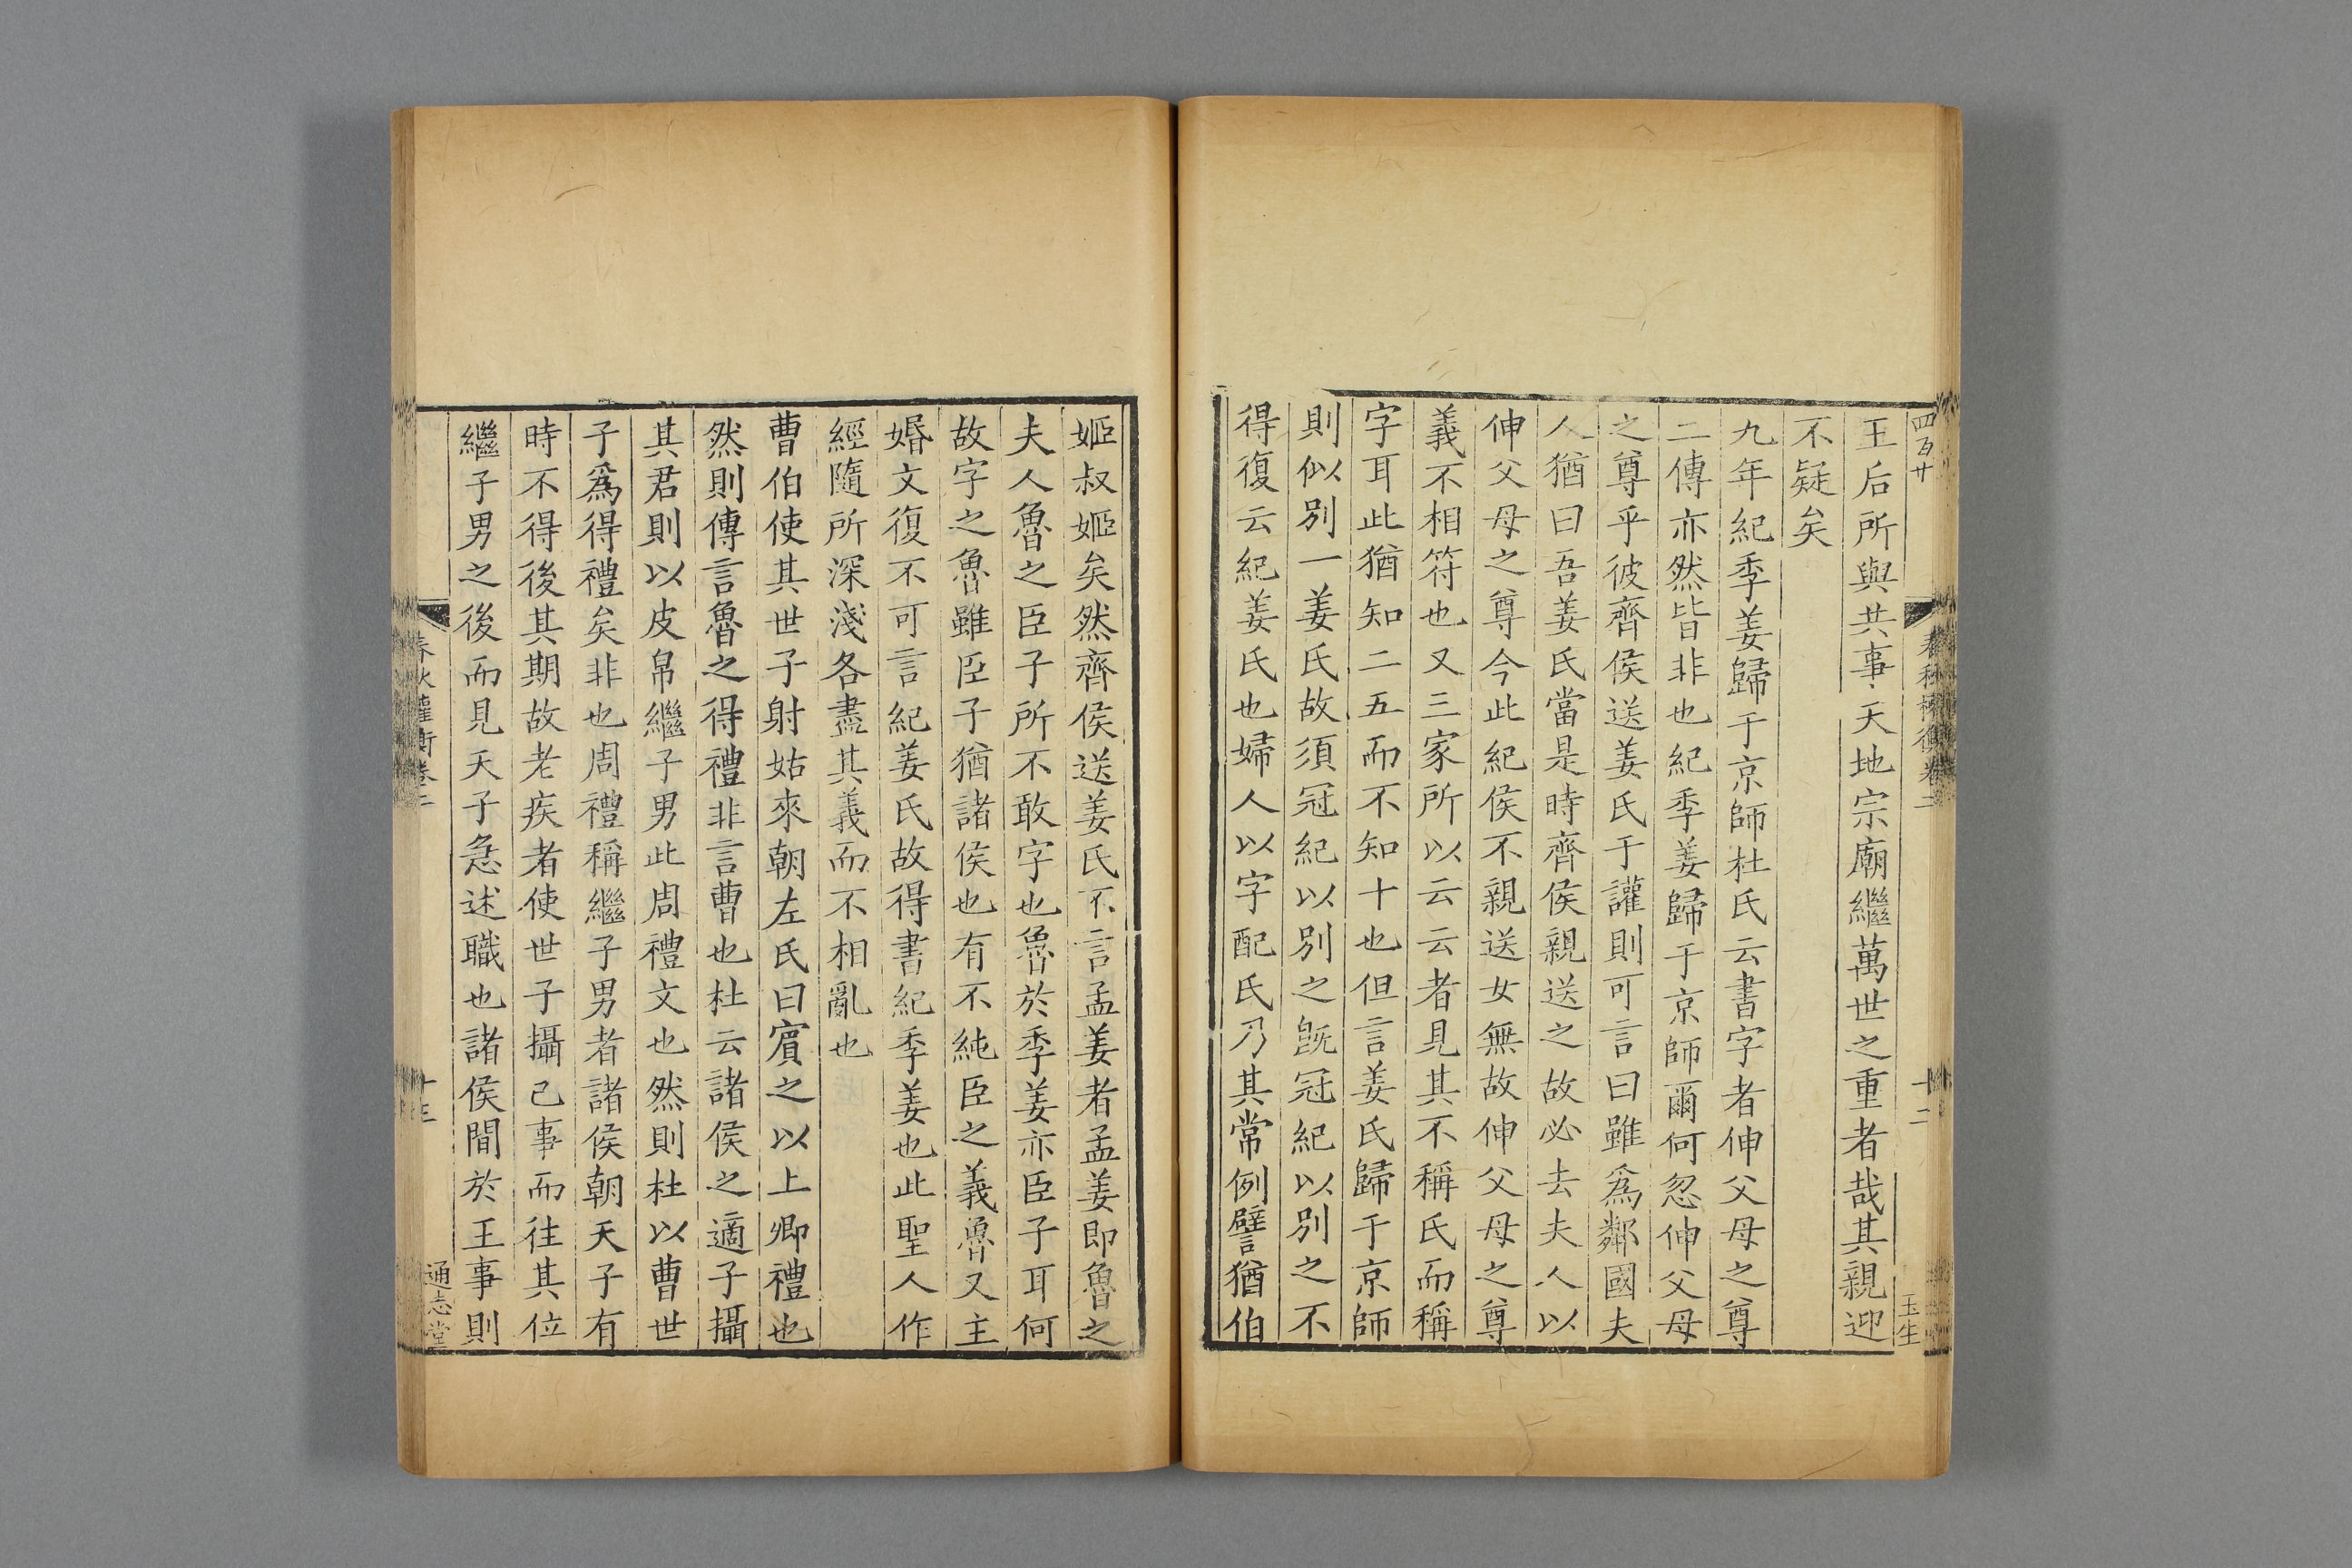 四百廿
春秋權衡卷二
十二
玉生
王后所與共事天地宗廟繼萬世之重者哉其親迎
不疑矣
九年紀季姜歸于京師杜氏云書字者伸父母之尊
二傳亦然皆非也紀季姜歸于京師爾何忽伸父母
之尊乎彼齊侯送姜氏于讙則可言曰雖爲鄰國夫
人猶曰吾姜氏當是時齊侯親送之故必去夫人以
伸父母之尊今此紀侯不親送女無故伸父母之尊
義不相符也又三家所以云云者見其不稱氏而稱
字耳此猶知二五而不知十也但言姜氏歸于京師
則似別一姜氏故須冠紀以別之旣冠紀以別之不
得復云紀姜氏也婦人以字配氏乃其常例譬猶伯
姬叔姬矣然齊侯送姜氏不言孟姜者孟姜即魯之
夫人魯之臣子所不敢字也魯於季姜亦臣子耳何
故字之魯雖臣子猶諸侯也有不純臣之義魯又主
婚文復不可言紀姜氏故得書紀季姜也此聖人作
經隨所深淺各盡其義而不相亂也
曹伯使其世子射姑來朝左氏曰賔之以上卿禮也
然則傳言魯之得禮非言曹也杜云諸侯之適子攝
其君則以皮帛繼子男此周禮文也然則杜以曹世
子爲得禮矣非也周禮稱繼子男者諸侯朝天子有
時不得後其期故老疾者使世子攝己事而往其位
繼子男之後而見天子急述職也諸侯間於王事則
春秋權衡卷二
十三
通志堂